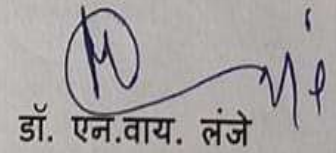 डॉ. एन.वाय. लंजे